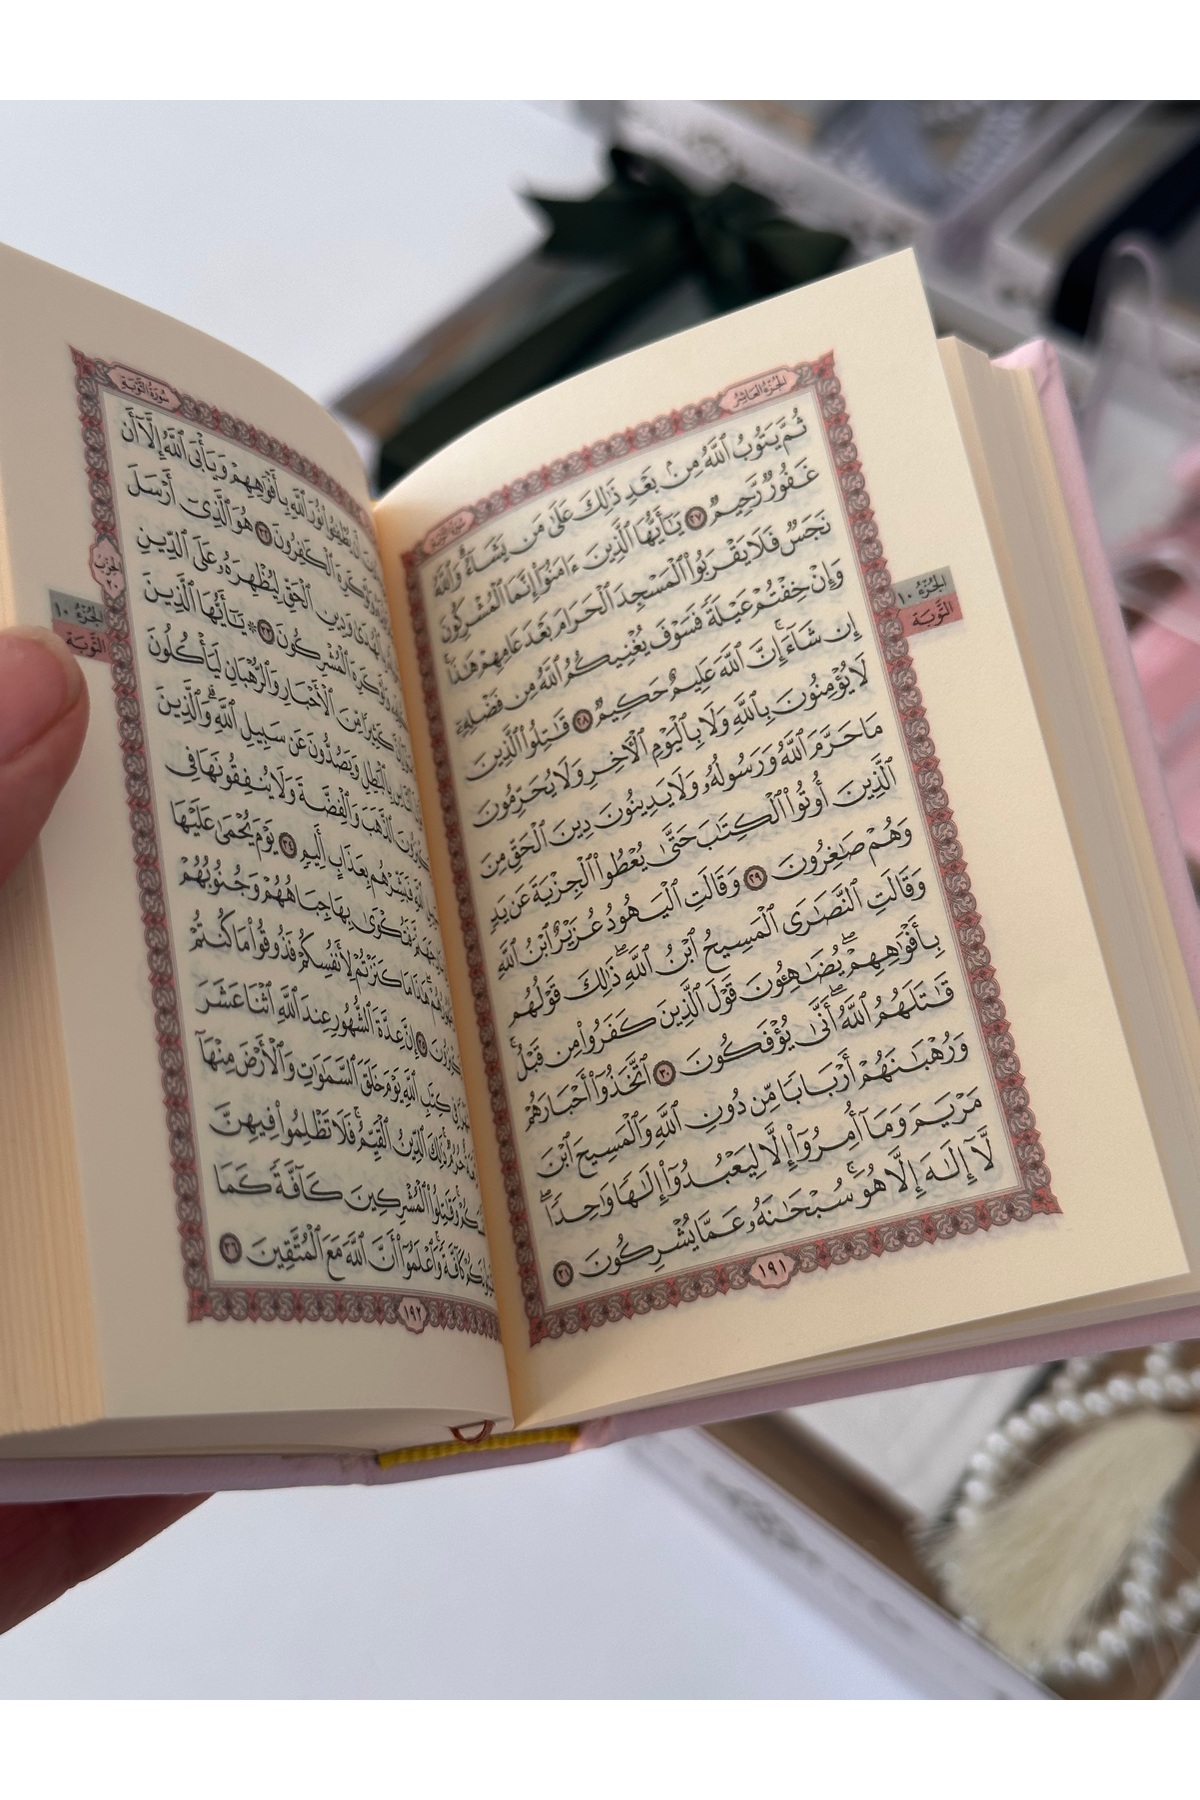 الجزء العاشر
ثُمَّ يَتُوبُ ٱللَّهُ مِنۢ بَعْدِ ذَٰلِكَ عَلَىٰ مَن يَشَآءُ وَٱللَّهُ
غَفُورٌ رَّحِيمٌ ٢٧ يَٰٓأَيُّهَا ٱلَّذِينَ ءَامَنُوٓا۟ إِنَّمَا ٱلْمُشْرِكُونَ
نَجَسٌ فَلَا يَقْرَبُوا۟ ٱلْمَسْجِدَ ٱلْحَرَامَ بَعْدَ عَامِهِمْ هَٰذَا
وَإِنْ خِفْتُمْ عَيْلَةً فَسَوْفَ يُغْنِيكُمُ ٱللَّهُ مِن فَضْلِهِۦٓ
إِن شَآءَ إِنَّ ٱللَّهَ عَلِيمٌ حَكِيمٌ ٢٨ قَٰتِلُوا۟ ٱلَّذِينَ
لَا يُؤْمِنُونَ بِٱللَّهِ وَلَا بِٱلْيَوْمِ ٱلْءَاخِرِ وَلَا يُحَرِّمُونَ
مَا حَرَّمَ ٱللَّهُ وَرَسُولُهُۥ وَلَا يَدِينُونَ دِينَ ٱلْحَقِّ مِنَ
ٱلَّذِينَ أُوتُوا۟ ٱلْكِتَٰبَ حَتَّىٰ يُعْطُوا۟ ٱلْجِزْيَةَ عَن يَدٍ
وَهُمْ صَٰغِرُونَ ٢٩ وَقَالَتِ ٱلْيَهُودُ عُزَيْرٌ ٱبْنُ ٱللَّهِ
وَقَالَتِ ٱلنَّصَٰرَى ٱلْمَسِيحُ ٱبْنُ ٱللَّهِ ۖ ذَٰلِكَ قَوْلُهُم
بِأَفْوَٰهِهِمْ ۖ يُضَٰهِـُٔونَ قَوْلَ ٱلَّذِينَ كَفَرُوا۟ مِن قَبْلُ ۚ
قَٰتَلَهُمُ ٱللَّهُ ۖ أَنَّىٰ يُؤْفَكُونَ ٣٠ ٱتَّخَذُوٓا۟ أَحْبَارَهُمْ
وَرُهْبَٰنَهُمْ أَرْبَابًا مِّن دُونِ ٱللَّهِ وَٱلْمَسِيحَ ٱبْنَ
مَرْيَمَ وَمَآ أُمِرُوٓا۟ إِلَّا لِيَعْبُدُوٓا۟ إِلَٰهًا وَٰحِدًا ۖ
لَّآ إِلَٰهَ إِلَّا هُوَ ۚ سُبْحَٰنَهُۥ عَمَّا يُشْرِكُونَ ٣١
١٩١
الجزء ١٠
التوبة
سورة التوبة
يُطْفِـُٔوا۟ نُورَ ٱللَّهِ بِأَفْوَٰهِهِمْ وَيَأْبَى ٱللَّهُ إِلَّآ أَن
ٱلْكَٰفِرُونَ ٣٢ هُوَ ٱلَّذِىٓ أَرْسَلَ
وَدِينِ ٱلْحَقِّ لِيُظْهِرَهُۥ عَلَى ٱلدِّينِ
كَرِهَ ٱلْمُشْرِكُونَ ٣٣ ۞ يَٰٓأَيُّهَا ٱلَّذِينَ
كَثِيرًا مِّنَ ٱلْأَحْبَارِ وَٱلرُّهْبَانِ لَيَأْكُلُونَ
بِٱلْبَٰطِلِ وَيَصُدُّونَ عَن سَبِيلِ ٱللَّهِ ۗ وَٱلَّذِينَ
ٱلذَّهَبَ وَٱلْفِضَّةَ وَلَا يُنفِقُونَهَا فِى
فَبَشِّرْهُم بِعَذَابٍ أَلِيمٍ ٣٤ يَوْمَ يُحْمَىٰ عَلَيْهَا
جَهَنَّمَ فَتُكْوَىٰ بِهَا جِبَاهُهُمْ وَجُنُوبُهُمْ
هَٰذَا مَا كَنَزْتُمْ لِأَنفُسِكُمْ فَذُوقُوا۟ مَا كُنتُمْ
٣٥ إِنَّ عِدَّةَ ٱلشُّهُورِ عِندَ ٱللَّهِ ٱثْنَا عَشَرَ
فِى كِتَٰبِ ٱللَّهِ يَوْمَ خَلَقَ ٱلسَّمَٰوَٰتِ وَٱلْأَرْضَ مِنْهَآ
حُرُمٌ ذَٰلِكَ ٱلدِّينُ ٱلْقَيِّمُ ۚ فَلَا تَظْلِمُوا۟ فِيهِنَّ
وَقَٰتِلُوا۟ ٱلْمُشْرِكِينَ كَآفَّةً كَمَا
كَآفَّةً ۚ وَٱعْلَمُوٓا۟ أَنَّ ٱللَّهَ مَعَ ٱلْمُتَّقِينَ ٣٦
١٩٢
الحزب
٢٠
الجزء ١٠
التوبة